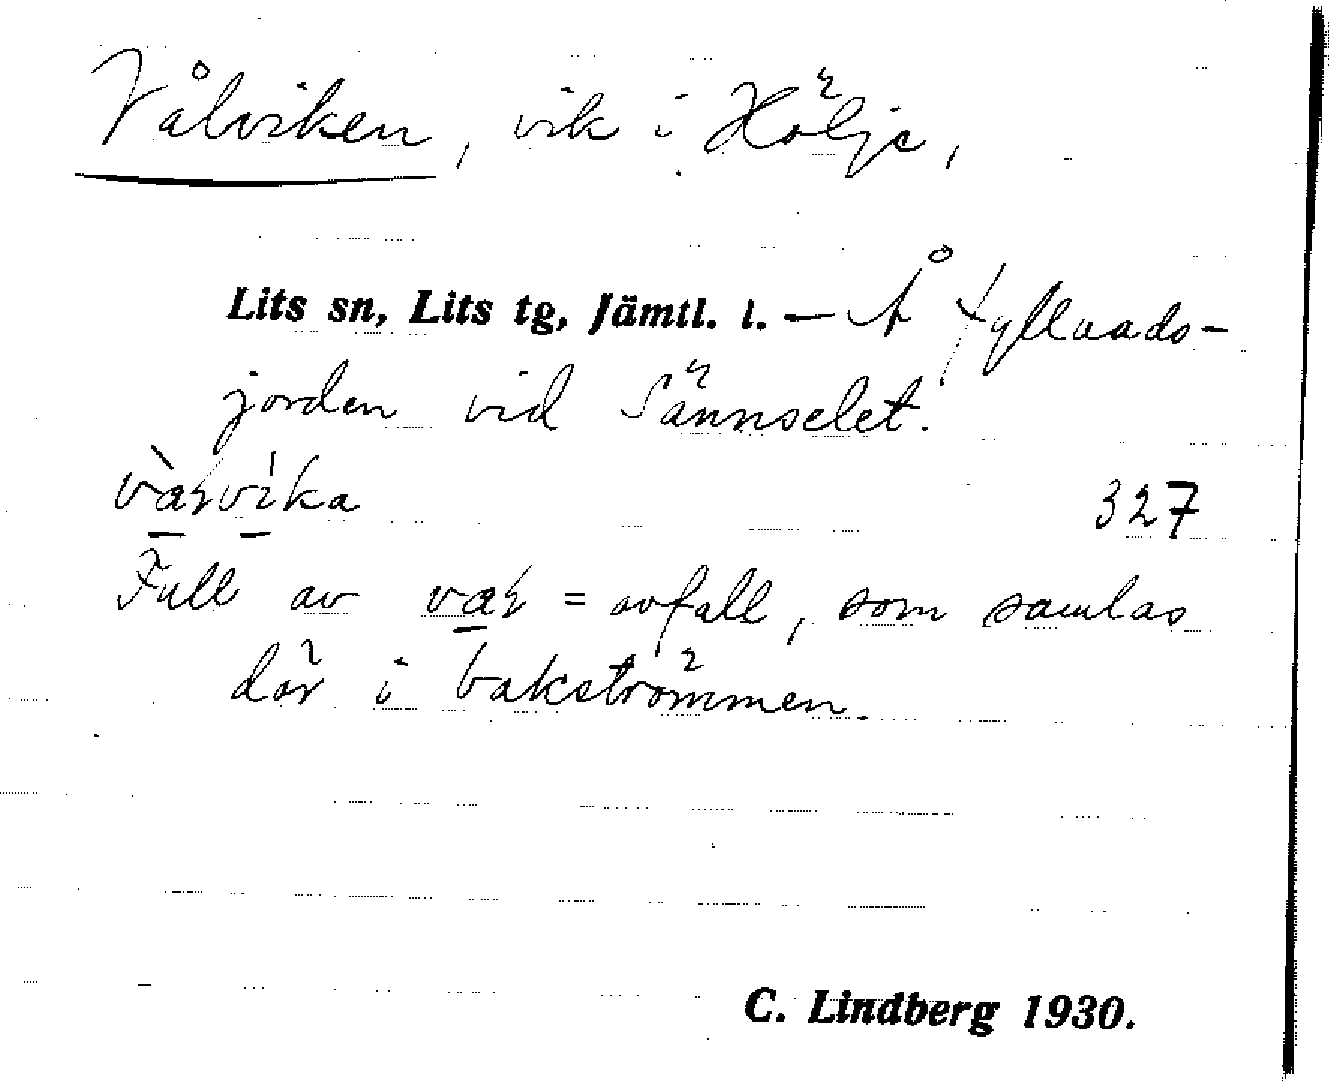 Vålviken, vik i Hölje,
Lits sn, Lits tg, Jämtl. l. — Å Fyllnads-
jorden vid Sännselet.
vàɽvìka
327
Full av vaɽ = avfall, som samlas
där i bakströmmen.
C. Lindberg 1930.